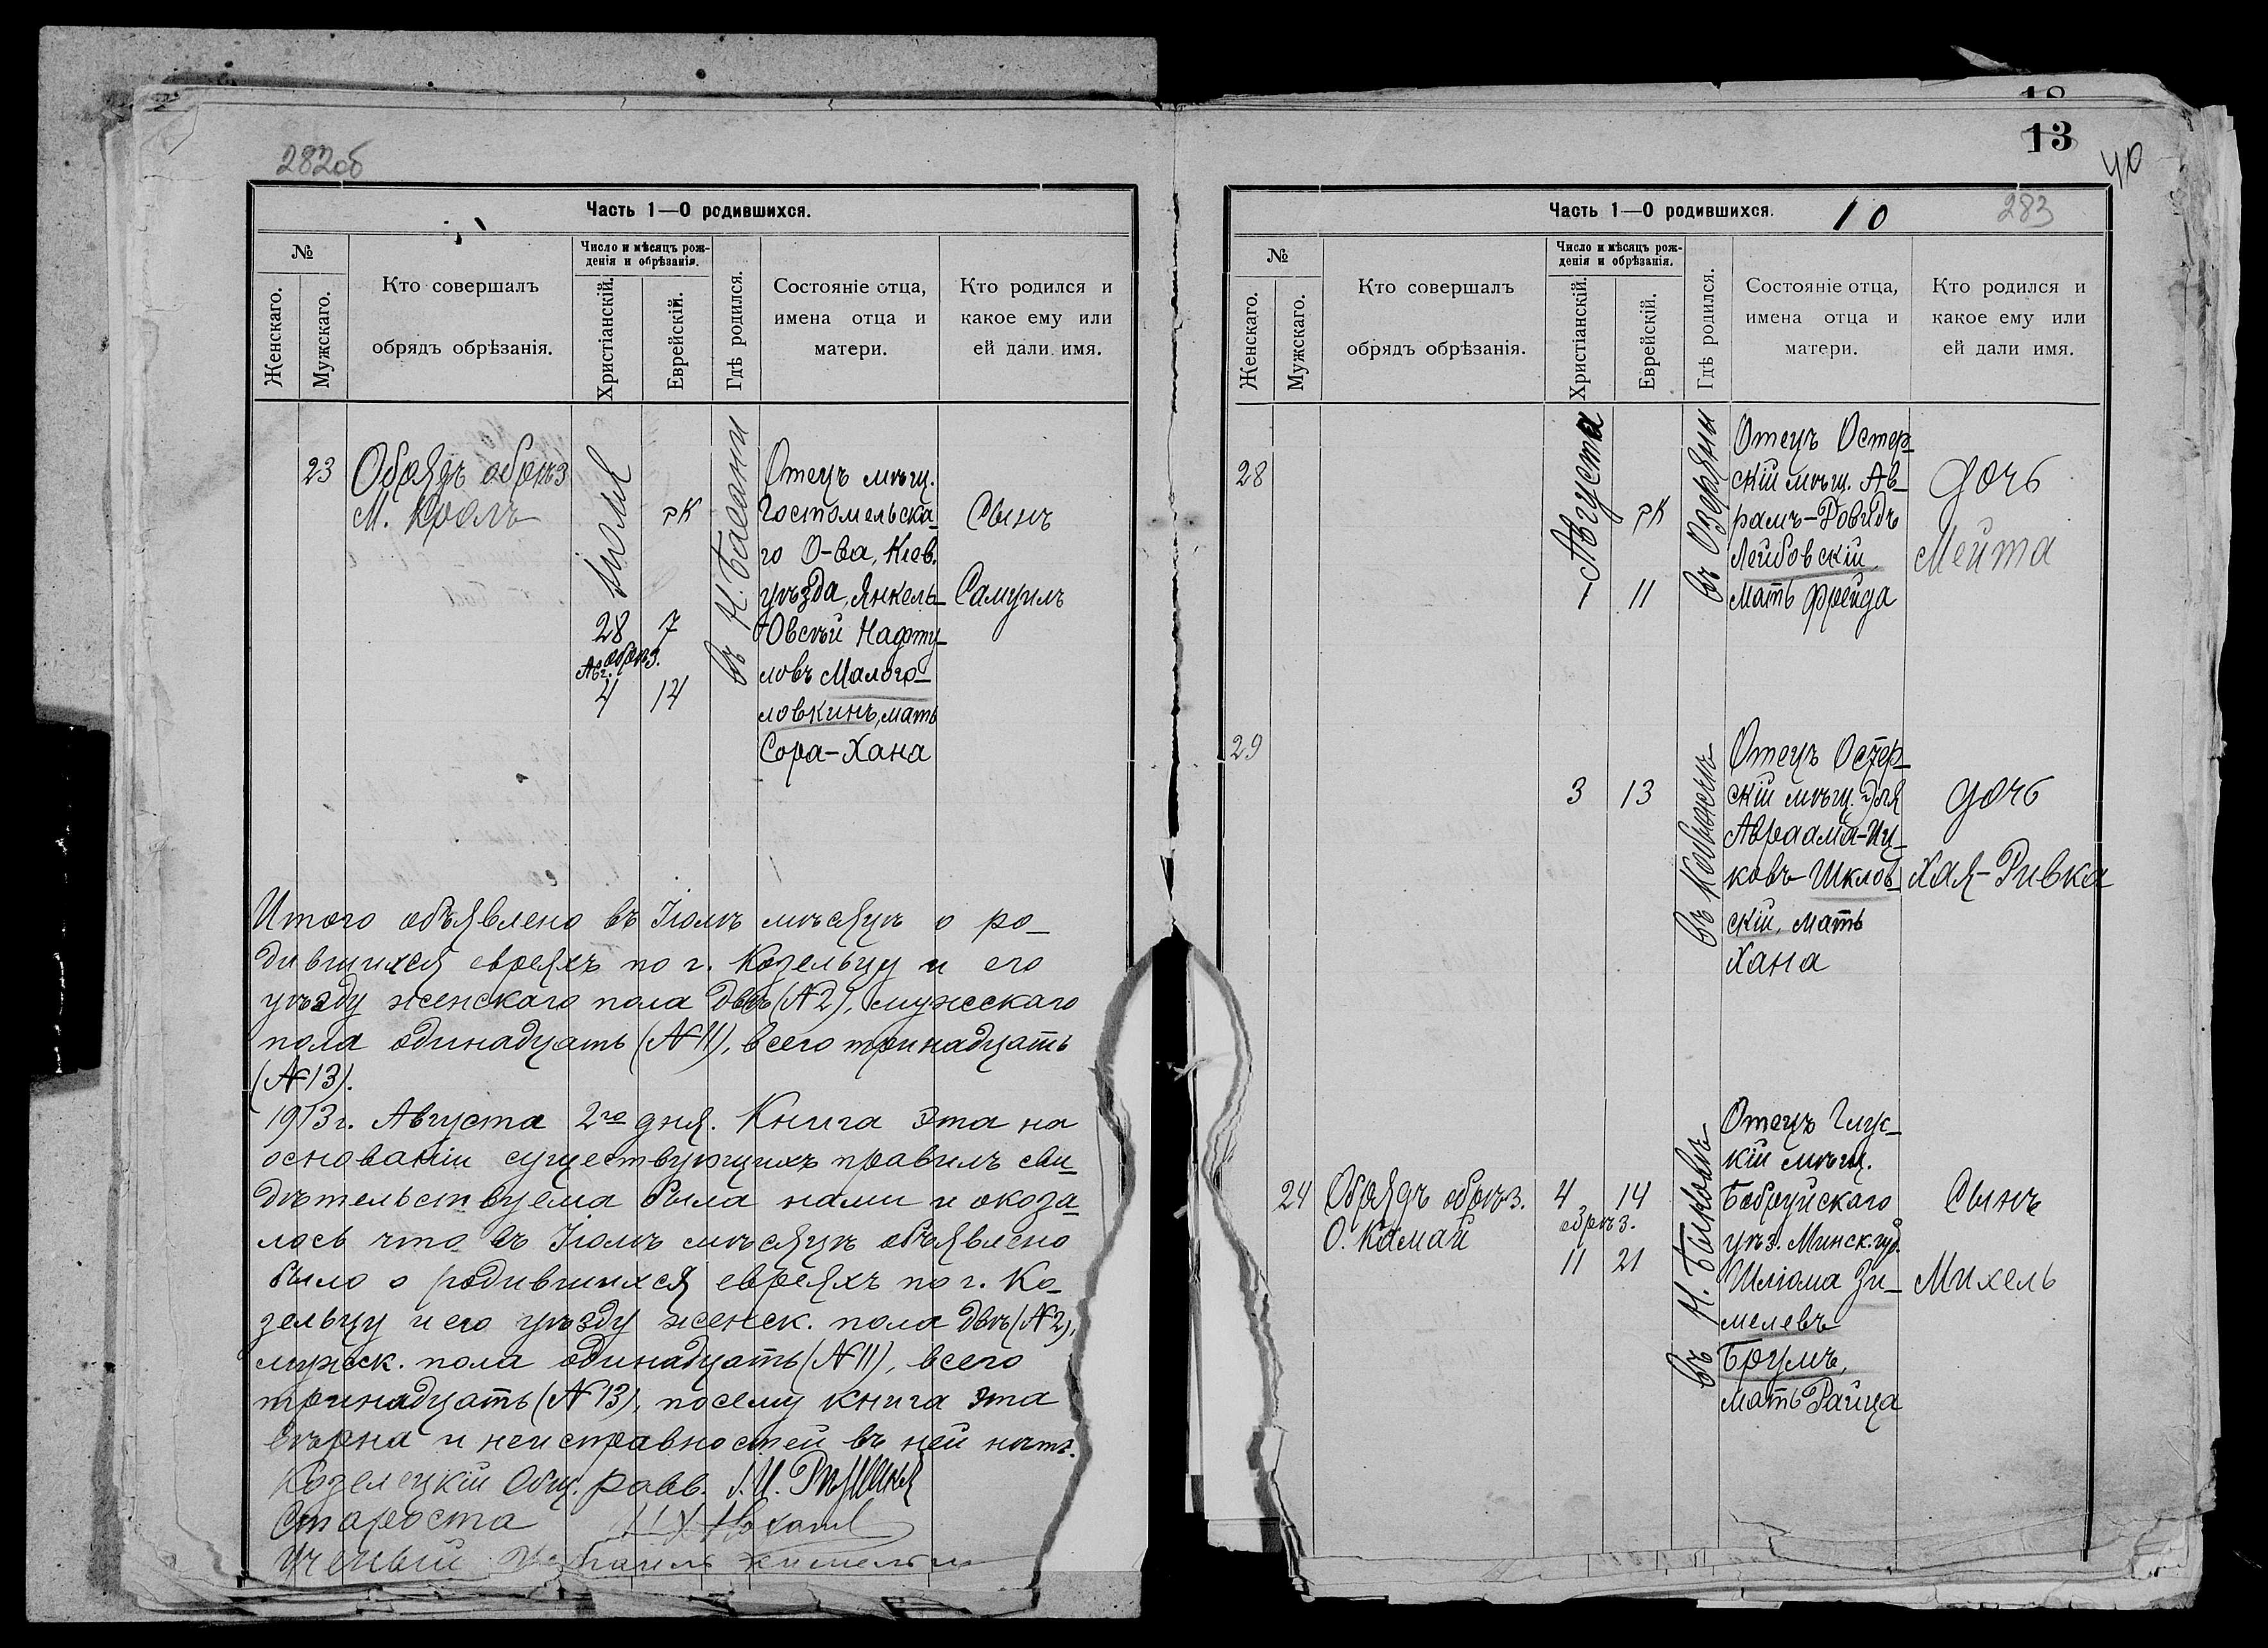 282об
Часть 1—О родившихся.
№
Женскаго.
Мужскаго.
Кто совершалъ
обрядъ обрѣзанія.
Число и мѣсяцъ рож-
денія и обрѣзанія.
Христіанскій.
Еврейскій.
Гдѣ родился.
Состояніе отца,
имена отца и
матери.
Кто родился и
какое ему или
ей дали имя.
23
Обрядъ обрѣз
М. Кролъ
Іюля
28
обрѣз.
Авг.
4
אב
7
14
въ М. Басани
Отецъ мѣщ.
Гостомельска-
го О-ва, Кіев.
уѣзда, Янкель-
Овсѣй Нафту-
ловъ Малого-
ловкинъ, мать
Сора-Хана
Сынъ
Самуилъ
Итого объявлено въ Іюлѣ мѣсяцѣ о ро-
дившихся евреяхъ по г. Козельцу и его
уѣзду женскаго пола двѣ (№ 2), мужескаго
пола одинадцать (№ 11), всего тринадцать
(№ 13).
1913 г. Августа 2го дня. Книга эта на
основаніи существующихъ правилъ сви-
дѣтельствуема была нами и оказа-
лось что въ Іюлѣ мѣсяцѣ объявлено
было о родившихся евреяхъ по г. Ко-
зельцу и его уѣзду женск. пола двѣ (№ 2),
мужск. пола одинадцать (№ 11), всего
тринадцать (№ 13), посему книга эта
вѣрна и неисправностей въ ней нѣтъ.
Козелецкій Общ. равв.
Староста
Ученый
13
40
283
Часть 1—О родившихся.
10
№
Женскаго.
Мужскаго.
Кто совершалъ
обрядъ обрѣзанія.
Число и мѣсяцъ рож-
денія и обрѣзанія.
Христіанскій.
Еврейскій.
Гдѣ родился.
Состояніе отца,
имена отца и
матери.
Кто родился и
какое ему или
ей дали имя.
28
Августа
1
אב
11
въ Озеряны
Отецъ Остер-
скій мѣщ. Ав-
рамъ-Довидъ
Лейбовскій
мать Фрейда
дочь
Мейта
29
3
13
Отецъ Остер-
скій мѣщ. Эля
Авраамъ-Иц-
ковъ Шклов-
скій, мать
Хана
дочь
Хая-Ривка
24
Обрядъ обрѣз.
О. Камай
4
обрѣз.
11
14
21
въ М. Быковѣ
Отецъ Глус-
кій мѣщ.
Бобруйскаго
уѣз. Минск. губ.
Шліома Зи-
мелевъ
Брумъ,
мать Райца
Сынъ
Михель